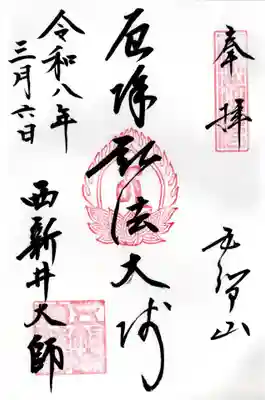 奉拝
五智山
厄除弘法大師
西新井大師
令和八年
三月六日